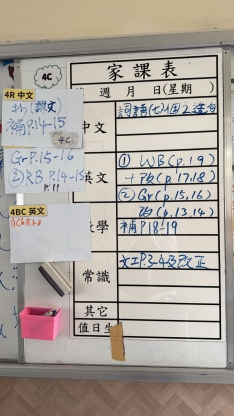 4C
家課表
週 月 日(星期 )
4R 中文
補P.14-15
4C
GrP.15-16
② RB P.14-15
P.11
4BC 英文
中文
英文
① WB (p.19)
+ 改 (p.17,18)
② Gr (p.15,16)
改 (p.13,14)
數學
補P18-19
常識
P.3-4及改正
其它
值日生